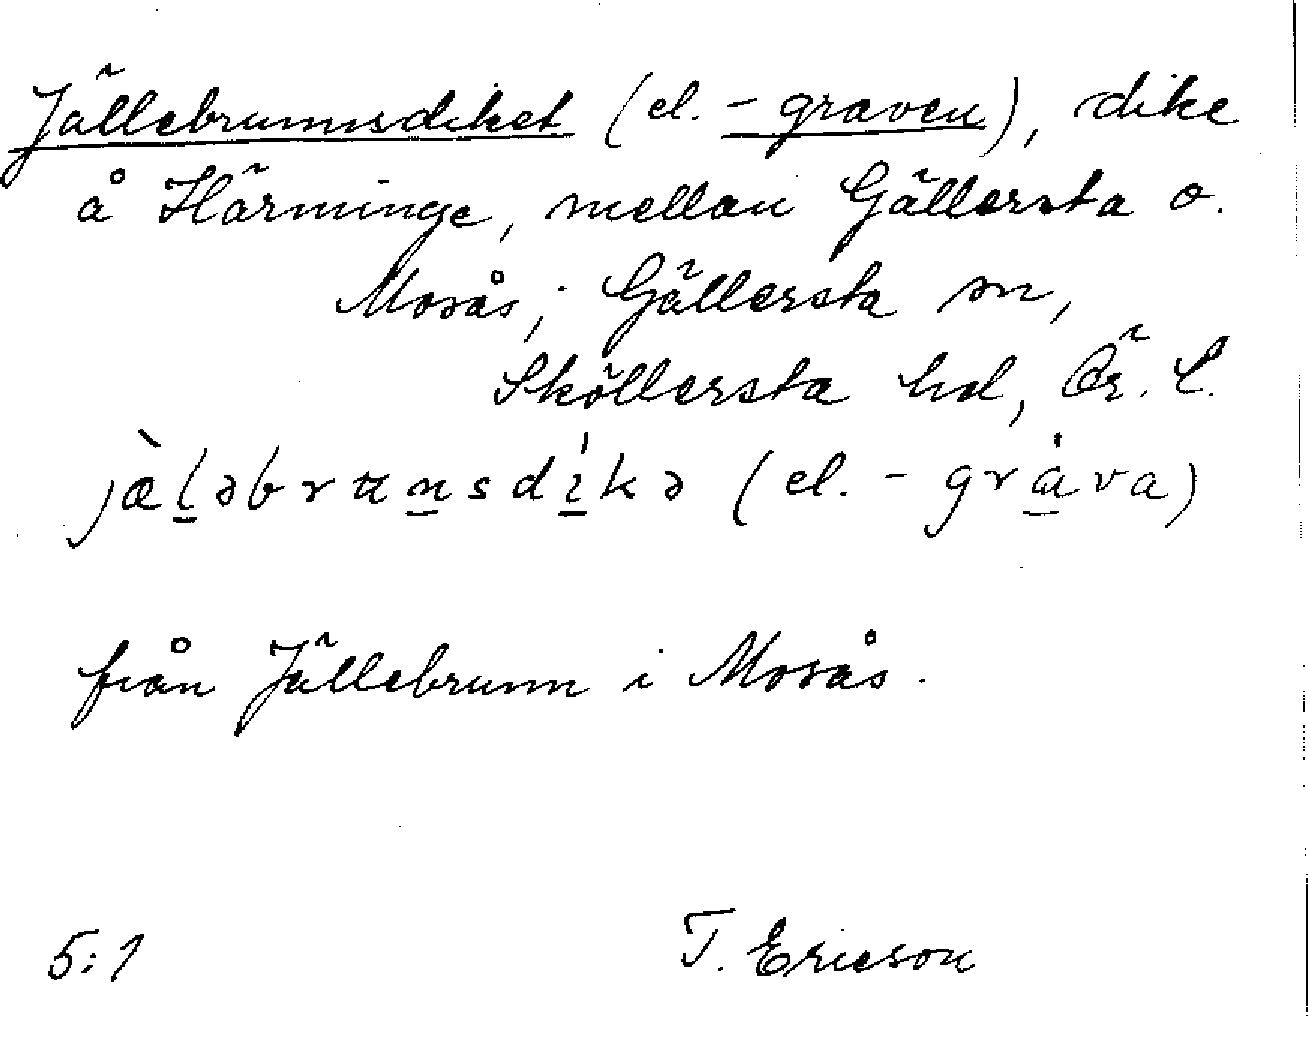 Jällebrunnsdiket (el. -graven), dike
å Härminge, mellan Gällersta o.
Mosås; Gällersta sn,
Sköllersta hd, Ör. l.
jæ̀l̲əbrun̲sdí̲kə (el. -grå̲va)
från Jällebrunn i Mosås.
5:1 T. Ericson